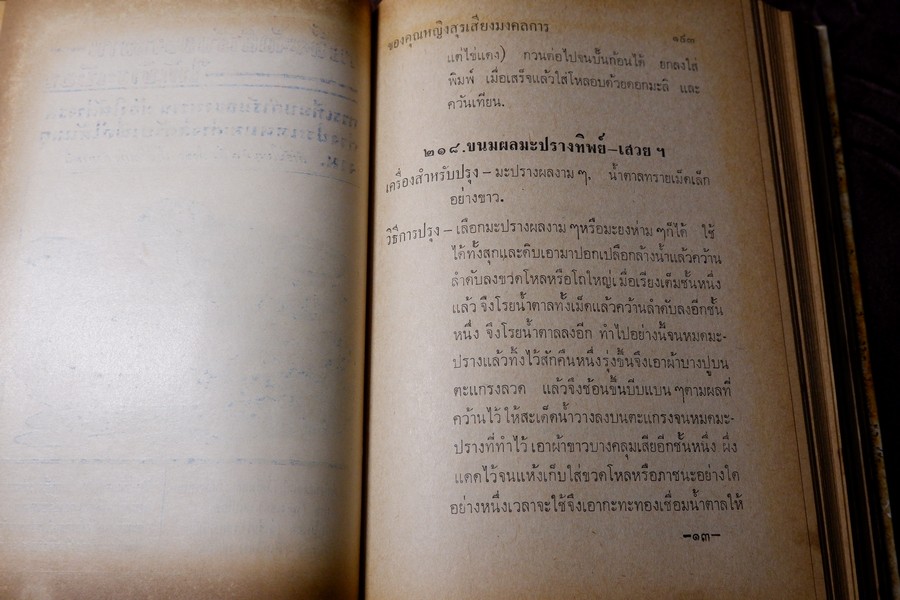 ของคุณหญิงสุรเสียงมงคลการ
๑๙๓
แต่ไข่แดง) กวนต่อไปจนปั้นก้อนได้ ยกลงใส่
พิมพ์ เมื่อเสร็จแล้วใส่โหลอบด้วยดอกมะลิ และ
ควันเทียน.
๒๑๘.ขนมผลมะปรางทิพย์–เสวย ฯ
เครื่องสำหรับปรุง – มะปรางผลงาม ๆ. น้ำตาลทรายเม็ดเล็ก
อย่างขาว.
วิธีการปรุง – เลือกมะปรางผลงาม ๆหรือมะยงห่าม ๆก็ได้ ใช้
ได้ทั้งสุกและดิบเอามาปอกเปลือกล้างน้ำแล้วคว้าน
ลำดับลงขวดโหลหรือโถใหญ่เมื่อเรียงเต็มชั้นหนึ่ง
แล้ว จึงโรยน้ำตาลทั้งเม็ดแล้วคว้านลำดับลงอีกชั้น
หนึ่ง จึงโรยน้ำตาลลงอีก ทำไปอย่างนี้จนหมดมะ-
ปรางแล้วทิ้งไว้สักคืนหนึ่งรุ่งขึ้นจึงเอาผ้าบางปูบน
ตะแกรงลวด แล้วจึงช้อนขึ้นบีบแบน ๆตามผลที่
คว้านไว้ ให้สะเด็ดน้ำวางลงบนตะแกรงจนหมดมะ-
ปรางที่ทำไว้ เอาผ้าขาวบางคลุมเสียอีกชั้นหนึ่ง ผึ่ง
แดดไว้จนแห้งเก็บใส่ขวดโหลหรือภาชนะอย่างใด
อย่างหนึ่งเวลาจะใช้จึงเอากะทะทองเชื่อมน้ำตาลให้
–๑๓–